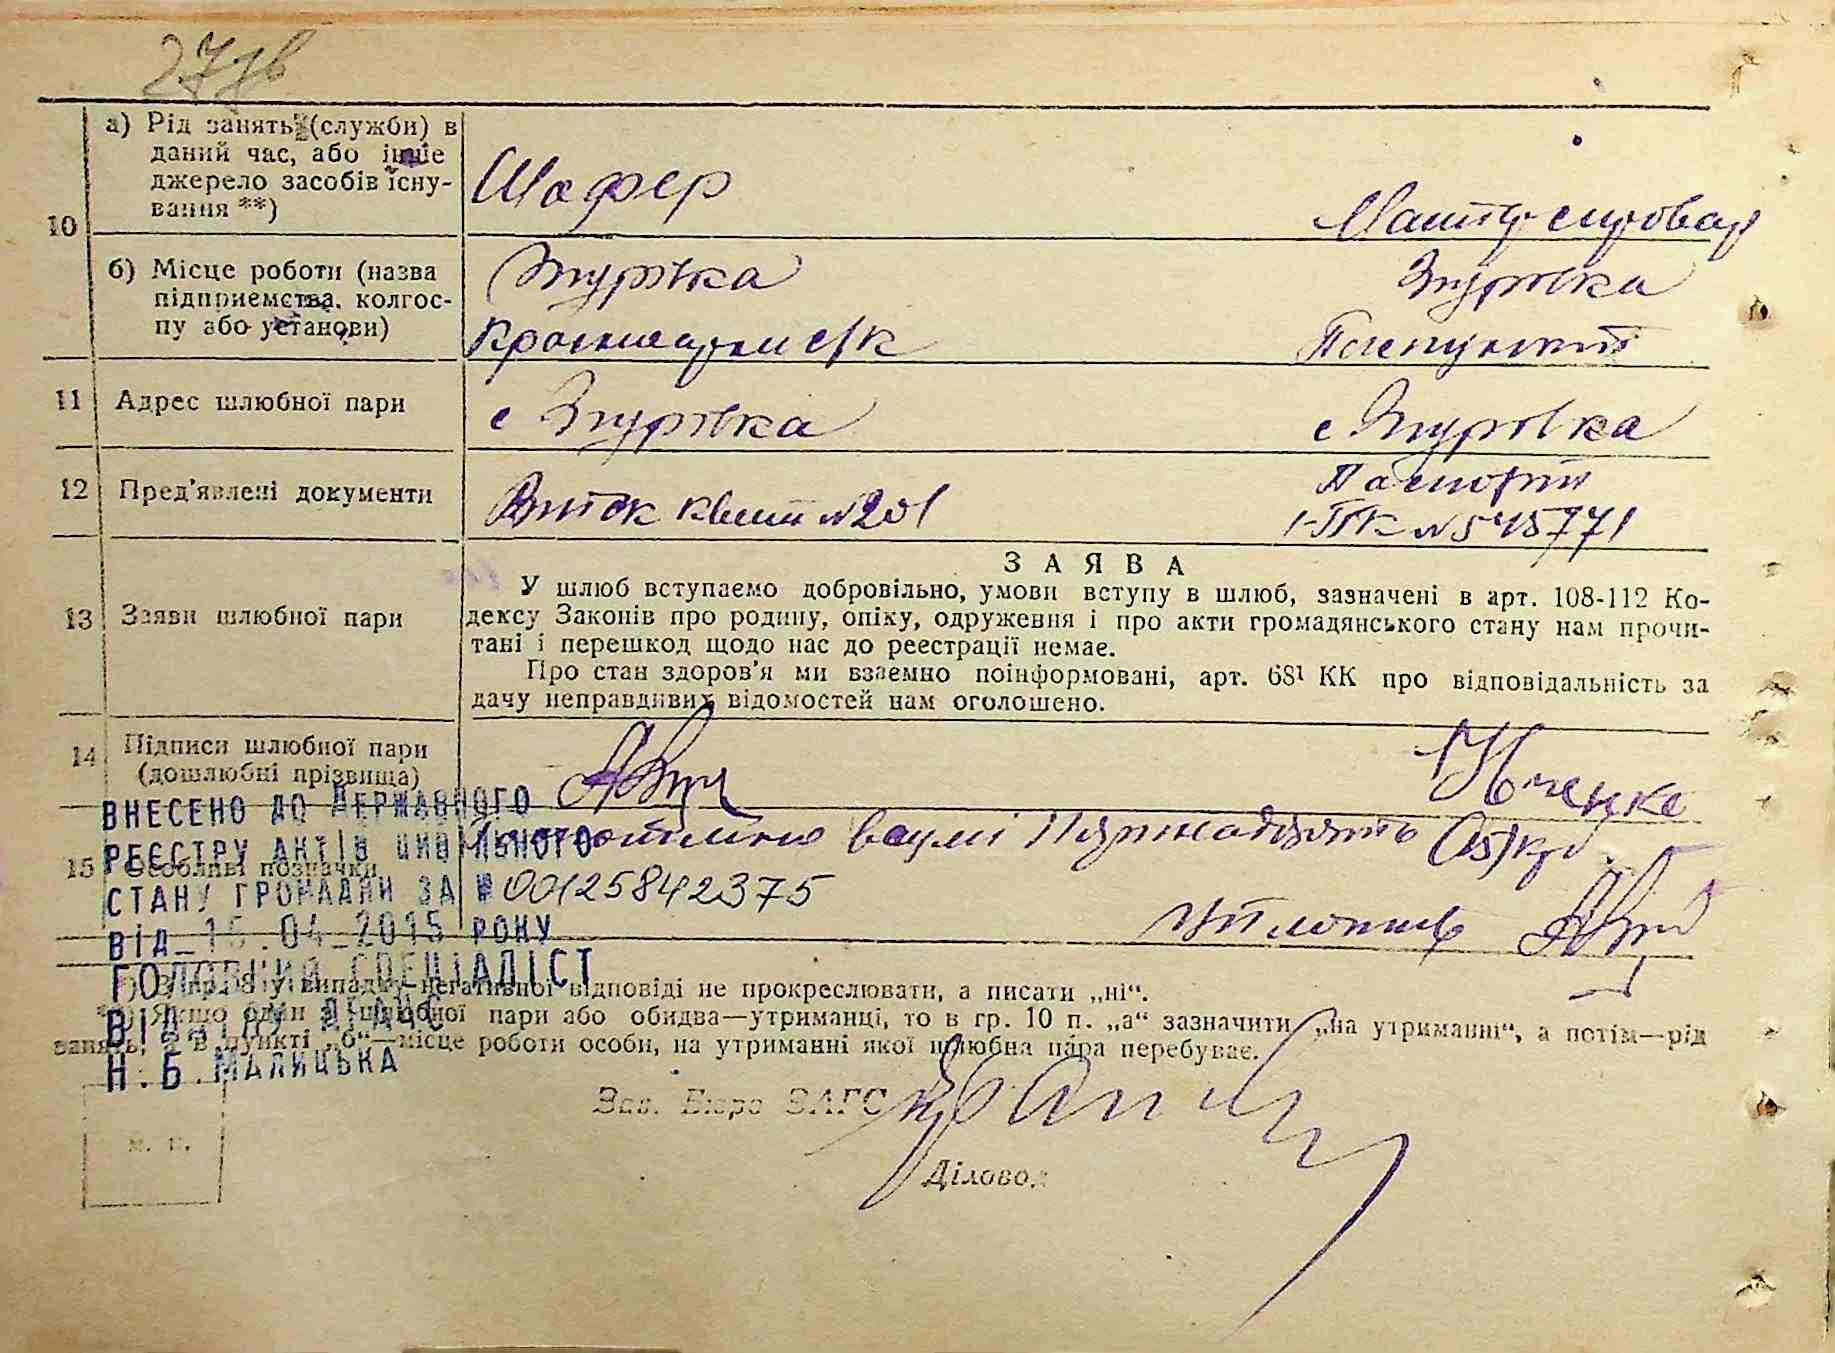 27зв
10
а) Рід занять (служби) в
даний час, або інше
джерело засобів існу-
вання **)
Шофер
б) Місце роботи (назва
підприємства, колгос-
пу або установи)
Згурівка
Згурівка
11 Адрес шлюбної пари
с Згурівка
с Згурівка
12 Пред'явлені документи
№ 201
Паспорт
І-ТК № 545771
13 Заяви шлюбної пари
ЗАЯВА
У шлюб вступаємо добровільно, умови вступу в шлюб, зазначені в арт. 108-112 Ко-
дексу Законів про родину, опіку, одруження і про акти громадянського стану нам прочи-
тані і перешкод щодо нас до реестрації немає.
Про стан здоров'я ми взаємно поінформовані, арт. 68¹ КК про відповідальність за
дачу неправдивих відомостей нам оголошено.
14 Підписи шлюбної пари
(дошлюбні прізвища)
15 Особливі позначки
(15) крб
ВНЕСЕНО ДО ДЕРЖАВНОГО
РЕЄСТРУ АКТІВ ЦИВІЛЬНОГО
СТАНУ ГРОМАДЯН ЗА № 00125842375
ВІД 15.04.2015 РОКУ
ГОЛОВНИЙ СПЕЦІАЛІСТ
ВІДДІЛУ ДРАЦС
Н.Б.МАЛИЦЬКА
*) В гр. 8 у випадку негативної відповіді не прокреслювати, а писати „ні“.
**) Якщо один з шлюбної пари або обидва—утриманці, то в гр. 10 п. „а“ зазначити „на утриманні“, а потім—рід
занять, а в пункті „б“—місце роботи особи, на утриманні якої шлюбна пара перебуває.
Зав. Бюро ЗАГС
м. п.
Діловод